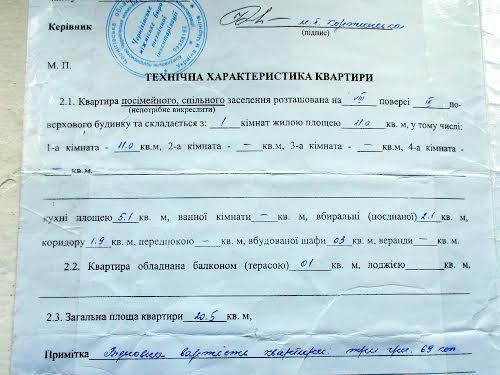 Керівник М. Г. Коржинецка
(підпис)
М. П.
ТЕХНІЧНА ХАРАКТЕРИСТИКА КВАРТИРИ
2.1. Квартира посімейного, спільного заселення розташована на VIII поверсі IX по-
(непотрібне викреслити)
верхового будинку та складається з: 1 кімнат жилою площею 11.0 кв. м, у тому числі:
1-а кімната - 11.0 кв.м, 2-а кімната - – кв. м, 3-а кімната - – кв. м, 4-а кімната -
– кв.м,
кухні площею 5.1 кв. м, ванної кімнати – кв. м, вбиральні (поєднаної) 2.1 кв. м,
коридору 1.9 кв. м, передпокою – кв. м, вбудованої шафи 03 кв. м, веранди – кв. м.
2.2. Квартира обладнана балконом (терасою) 01 кв. м, лоджією кв. м,
2.3. Загальна площа квартири 20.5 кв. м,
Примітка Відновна вартість квартири три грн. 69 коп.